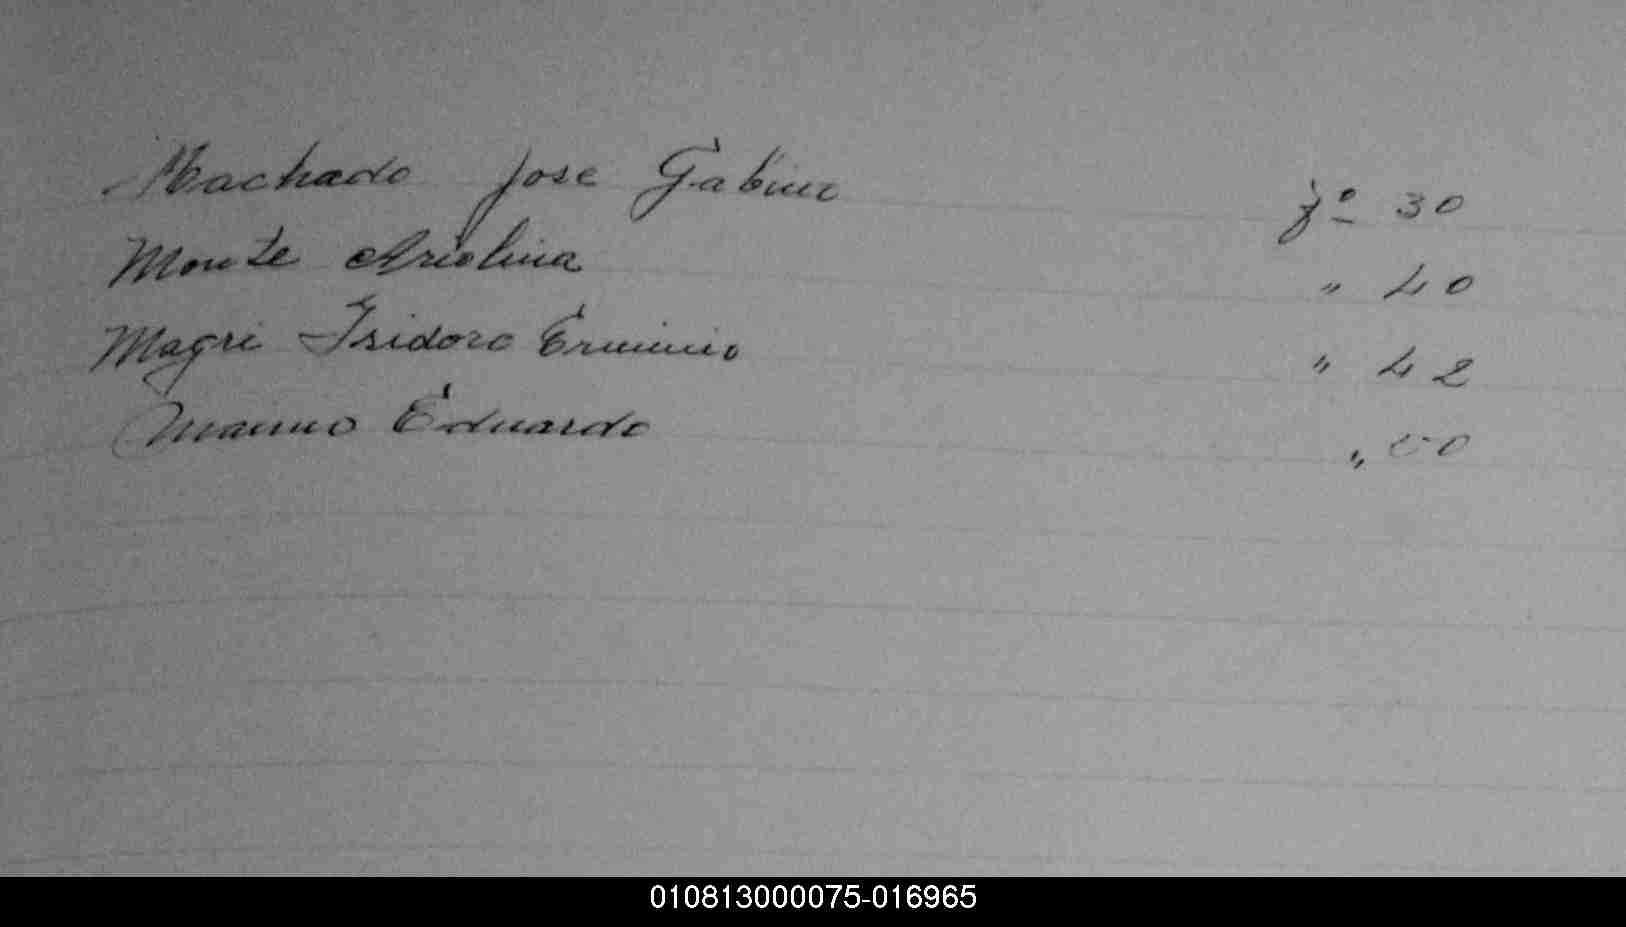 Machado Jose Gabino fº 30
Monte Ariolina " 40
Magri Isidoro Erminio " 42
Manno Eduardo "
010813000075-016965